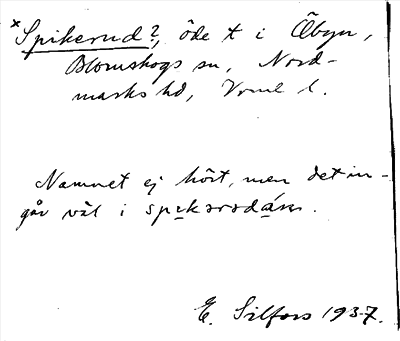 *Spikerud?, öde t i Åbyn,
Blomskogs sn, Nord-
marks hd, Vrml l.
Namnet ej hört, men det in-
går väl i
E. Silfors 1937.